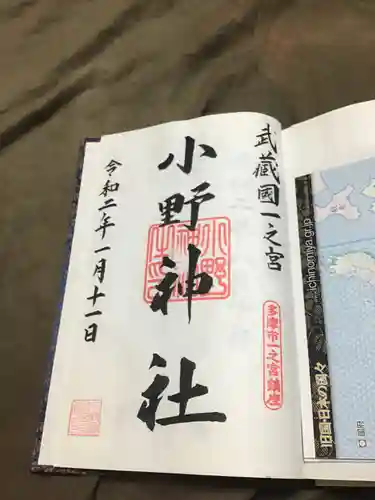 武蔵國一之宮
小野神社
令和二年一月十一日
多摩市一之宮鎮座
ichinomiya.gr.jp
旧国・日本の国々